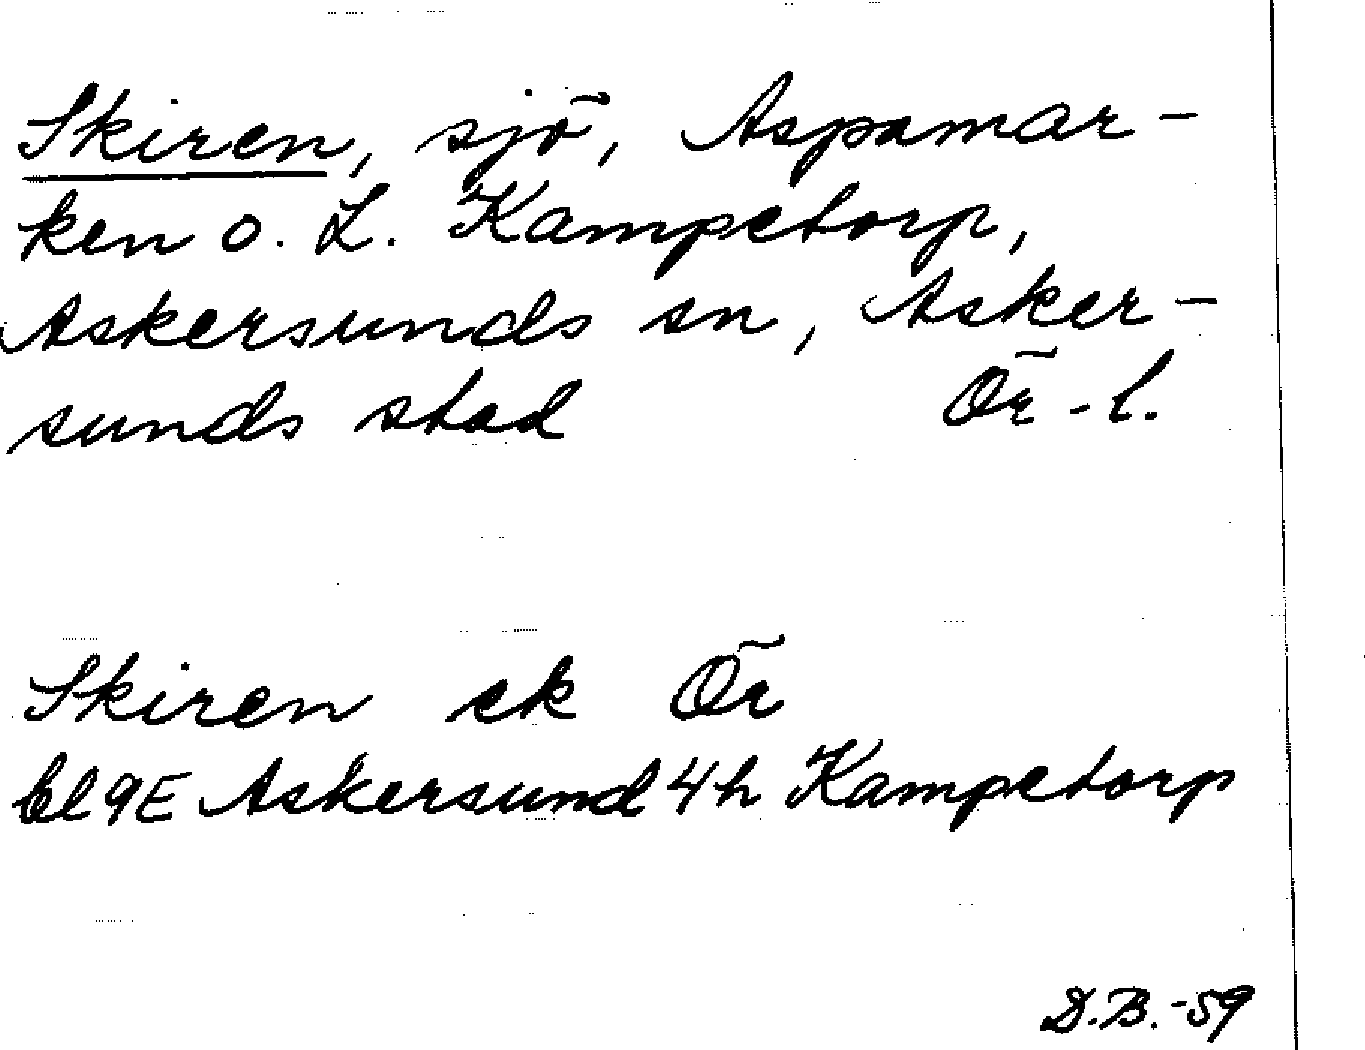 Skiren, sjö, Aspamar-
ken o. L. Kampetorp,
Askersunds sn, Asker-
sunds stad Ör-l.
Skiren ek Ör
bl 9E Askersund 4h Kampetorp
D.B.-59